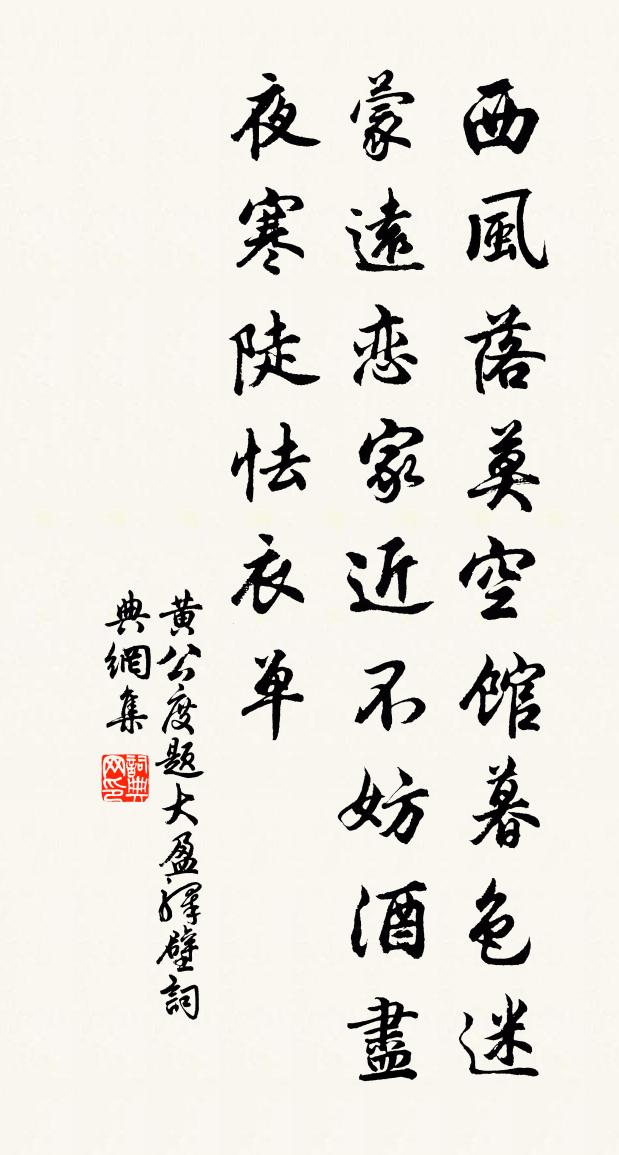 西風落莫空館暮色迷
蒙遠恋家近不妨酒盡
夜寒陡怯衣单
黄公度題大盈驛壁詞
典網集
詞典网印